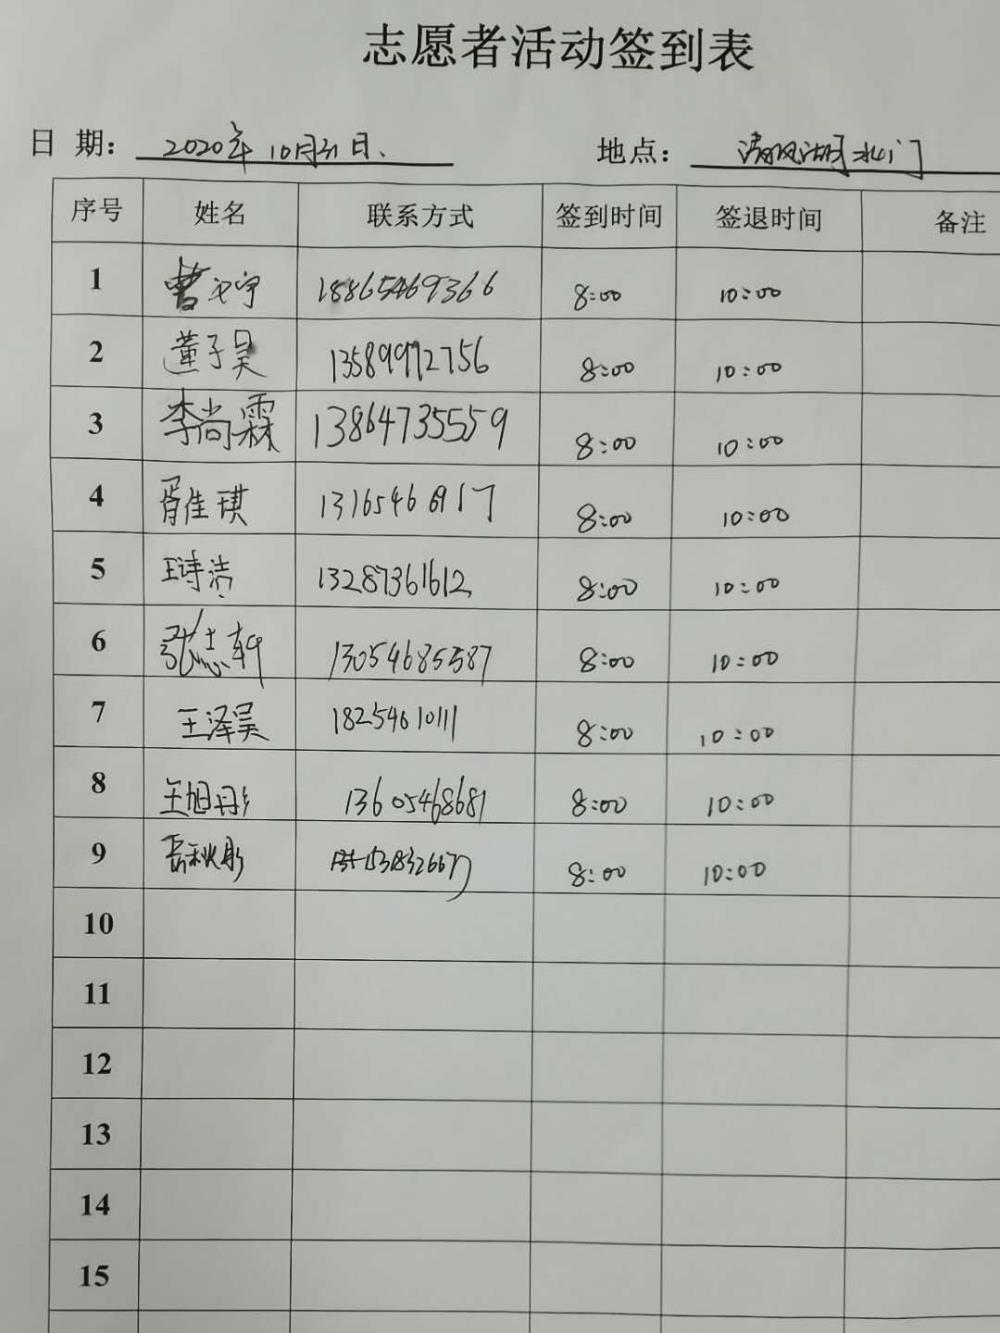 志愿者活动签到表
日 期： 2020年10月31日、 地点： 清风湖北门
序号 姓名 联系方式 签到时间 签退时间 备注
1 曹 宇 18865469366 8:00 10:00
2 董子昊 13589972756 8:00 10:00
3 李尚霖 13864735559 8:00 10:00
4 胥佳琪 8:00 10:00
5 王诗洁 13287361612 8:00 10:00
6 张志轩 13054685587 8:00 10:00
7 王泽昊 18254610111 8:00 10:00
8 王旭彤 13605468681 8:00 10:00
9 岳秋彤 8:00 10:00
10
11
12
13
14
15